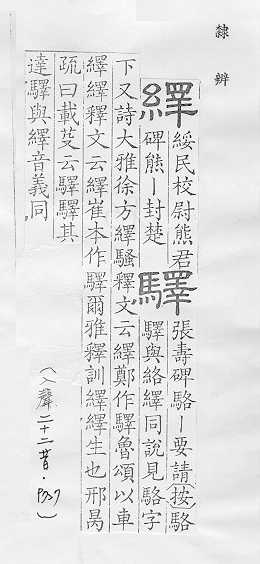 隸辨
繹
綏民校尉熊君
碑熊丨封楚
驛
張壽碑駱丨要請按駱
驛與絡繹同說見駱字
下又詩大雅徐方繹騷釋文云繹鄭作驛魯頌以車
繹繹釋文云繹崔本作驛爾雅釋訓繹繹生也邢昺
疏曰載芟云驛驛其
達驛與繹音義同
(入聲二十二昔·